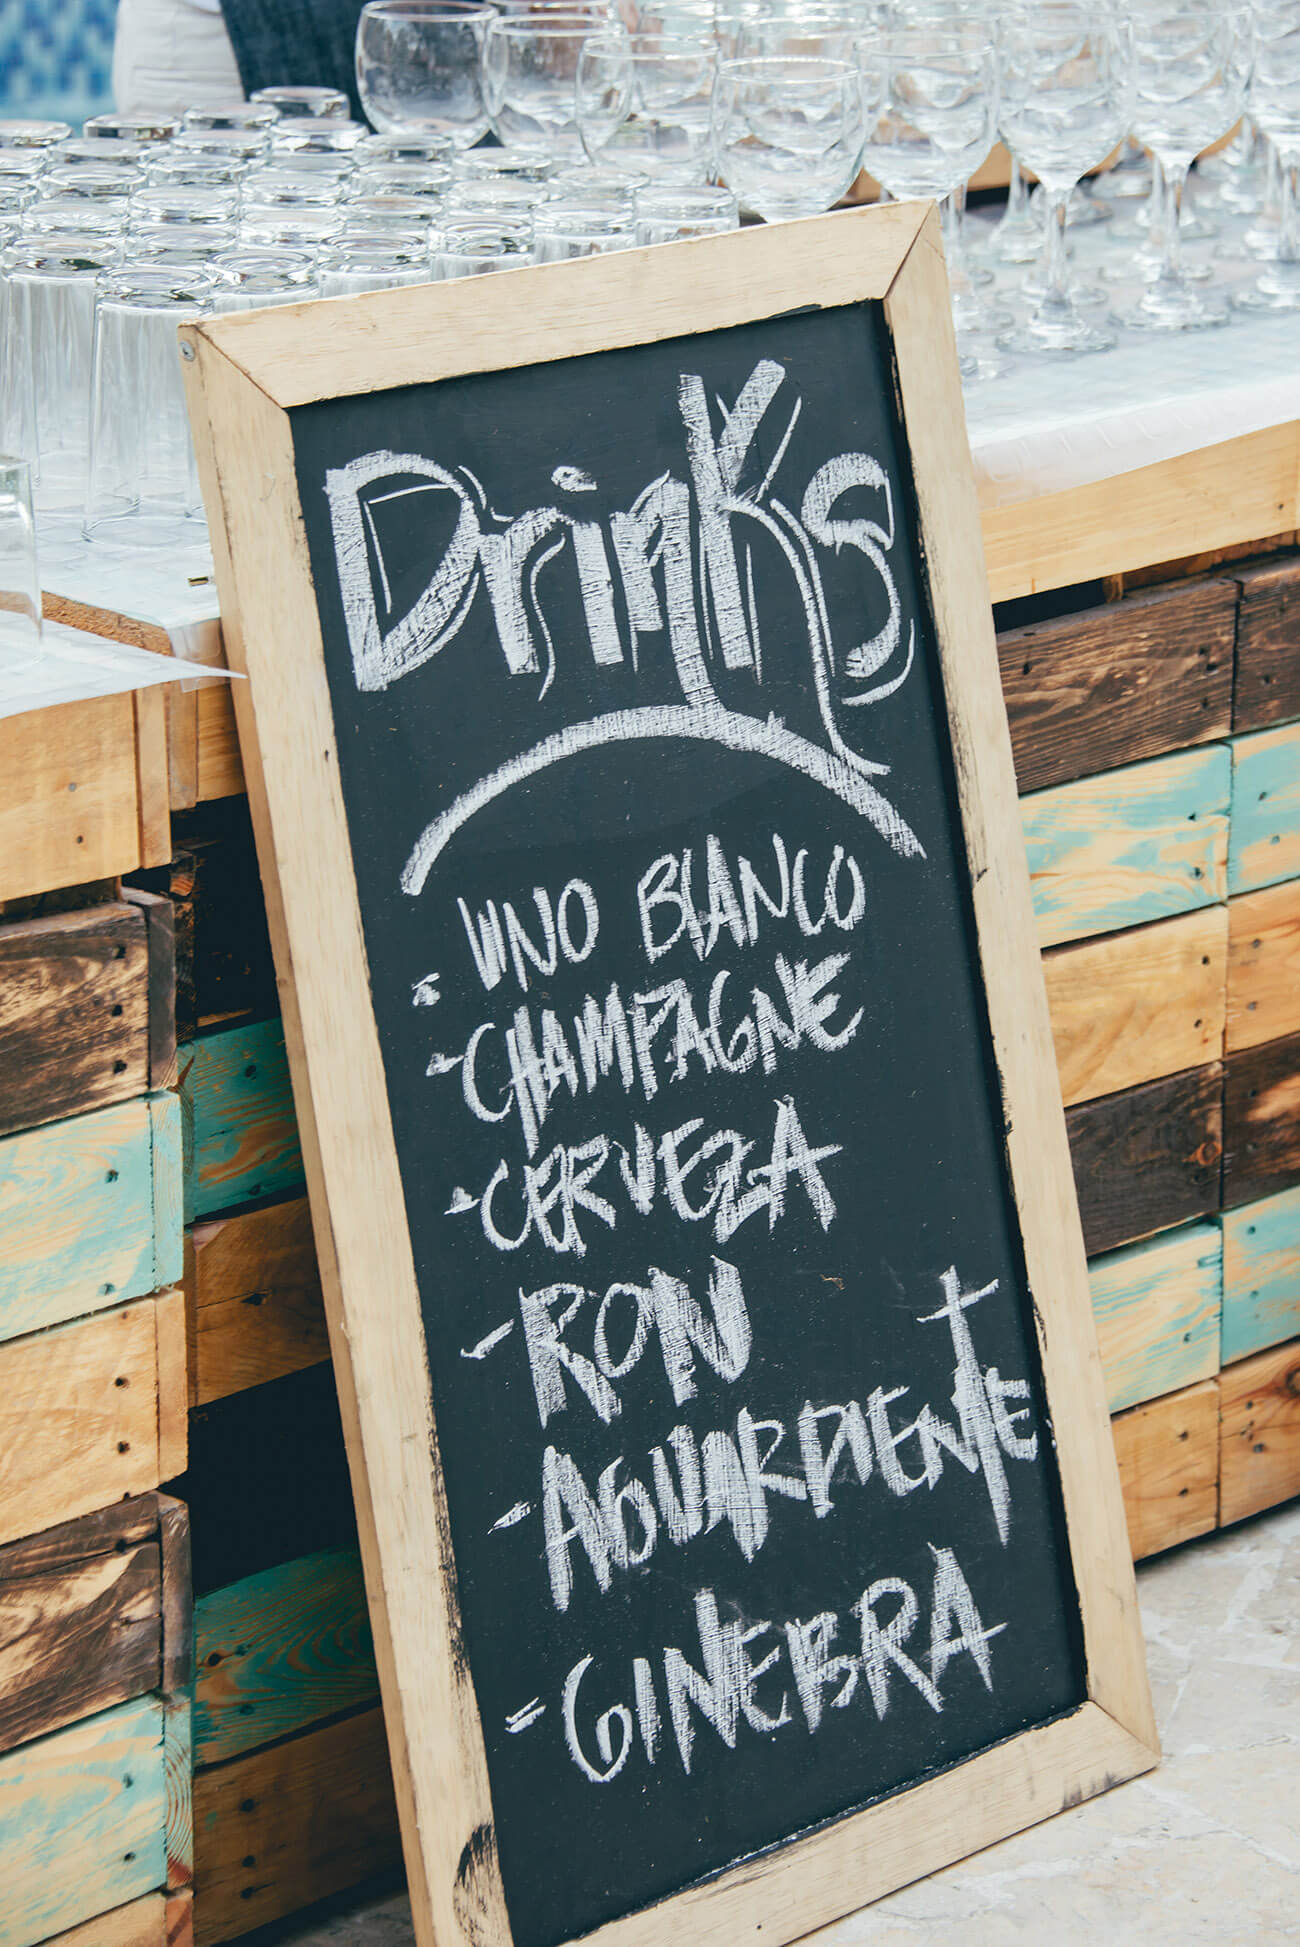 Drinks
- VINO BLANCO
- CHAMPAGNE
- CERVEZA
- RON
- AGUARDIENTE
- GINEBRA